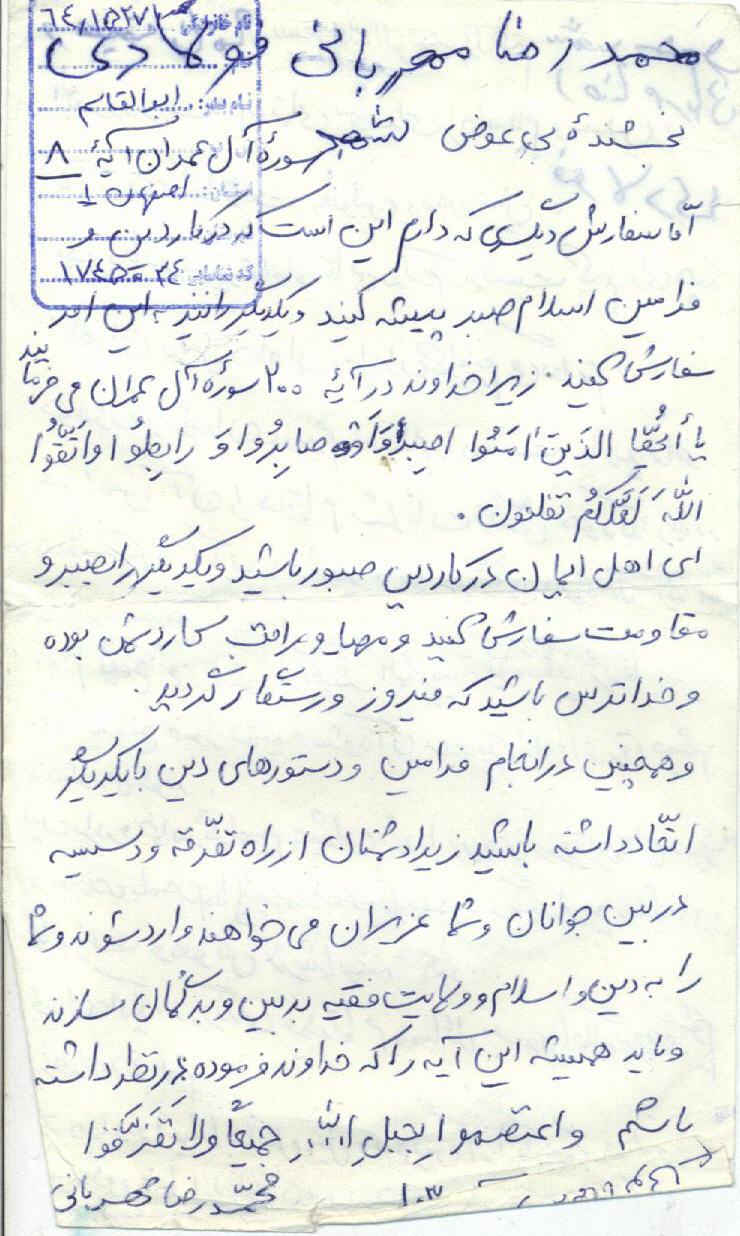 محمد رضا مهربانی فولادی
نام پدر: ابوالقاسم
بخشندهٔ بی عوض سورهٔ آل عمران آیهٔ ۸
امّا سفارش دیگری که دارم این است که در کار دین و
فرامین اسلام صبر پیشه کنید و یکدیگر را نیز به این امر
سفارش کنید. زیرا خداوند در آیهٔ ۲۰۰ سورهٔ آل عمران می فرمایند
یا أَیُّها الذینَ امَنُوا اصبِروُا وَ صابِرُوا وَ رابِطُوا وَاتَّقُوا
اللّهَ لَعَلَّکُم تفلحون.
ای اهل ایمان در کار دین صبور باشید و یکدیگر را بصبر و
مقاومت سفارش کنید و مهیا و مراقب کار دشمن بوده
و خدا ترس باشید که فیروز و رستگار گردید.
و همچنین در انجام فرامین و دستورهای دین با یکدیگر
اتّحاد داشته باشید زیرا دشمنان از راه تفرّقه و دسیسه
در بین جوانان و شما عزیزان می خواهند وارد شوند و شما
را به دین و اسلام و ولایت فقیه بدبین و بدگمان سازند
و باید همیشه این آیه را که خداوند فرموده در نظر داشته
باشم واعتصموا بِحبلِ اللّهِ جمیعًا ولا تَفَرَّقوا
۱۰۳ محمّد رضا مهربانی